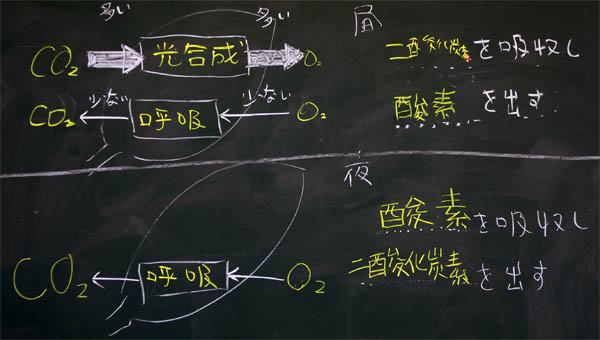 多い 多い 昼
CO₂ 光合成 O₂ 二酸化炭素を吸収し
少ない 少ない
CO₂ 呼吸 O₂ 酸素を出す
夜
酸素を吸収し
CO₂ 呼吸 O₂ 二酸化炭素を出す